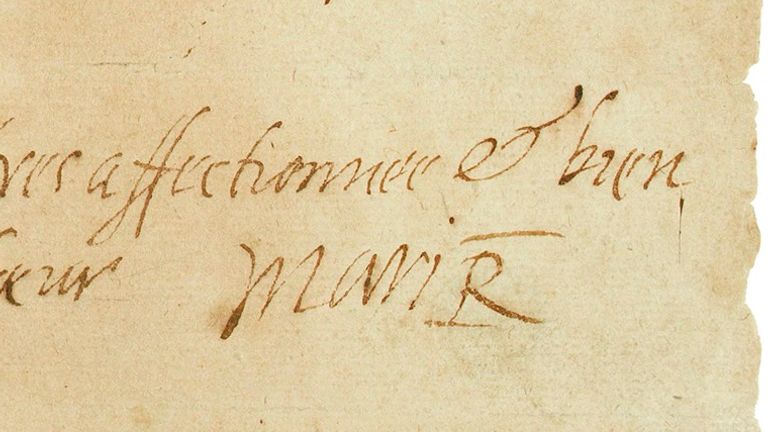 tres affectionnee & bien
seur Mari R